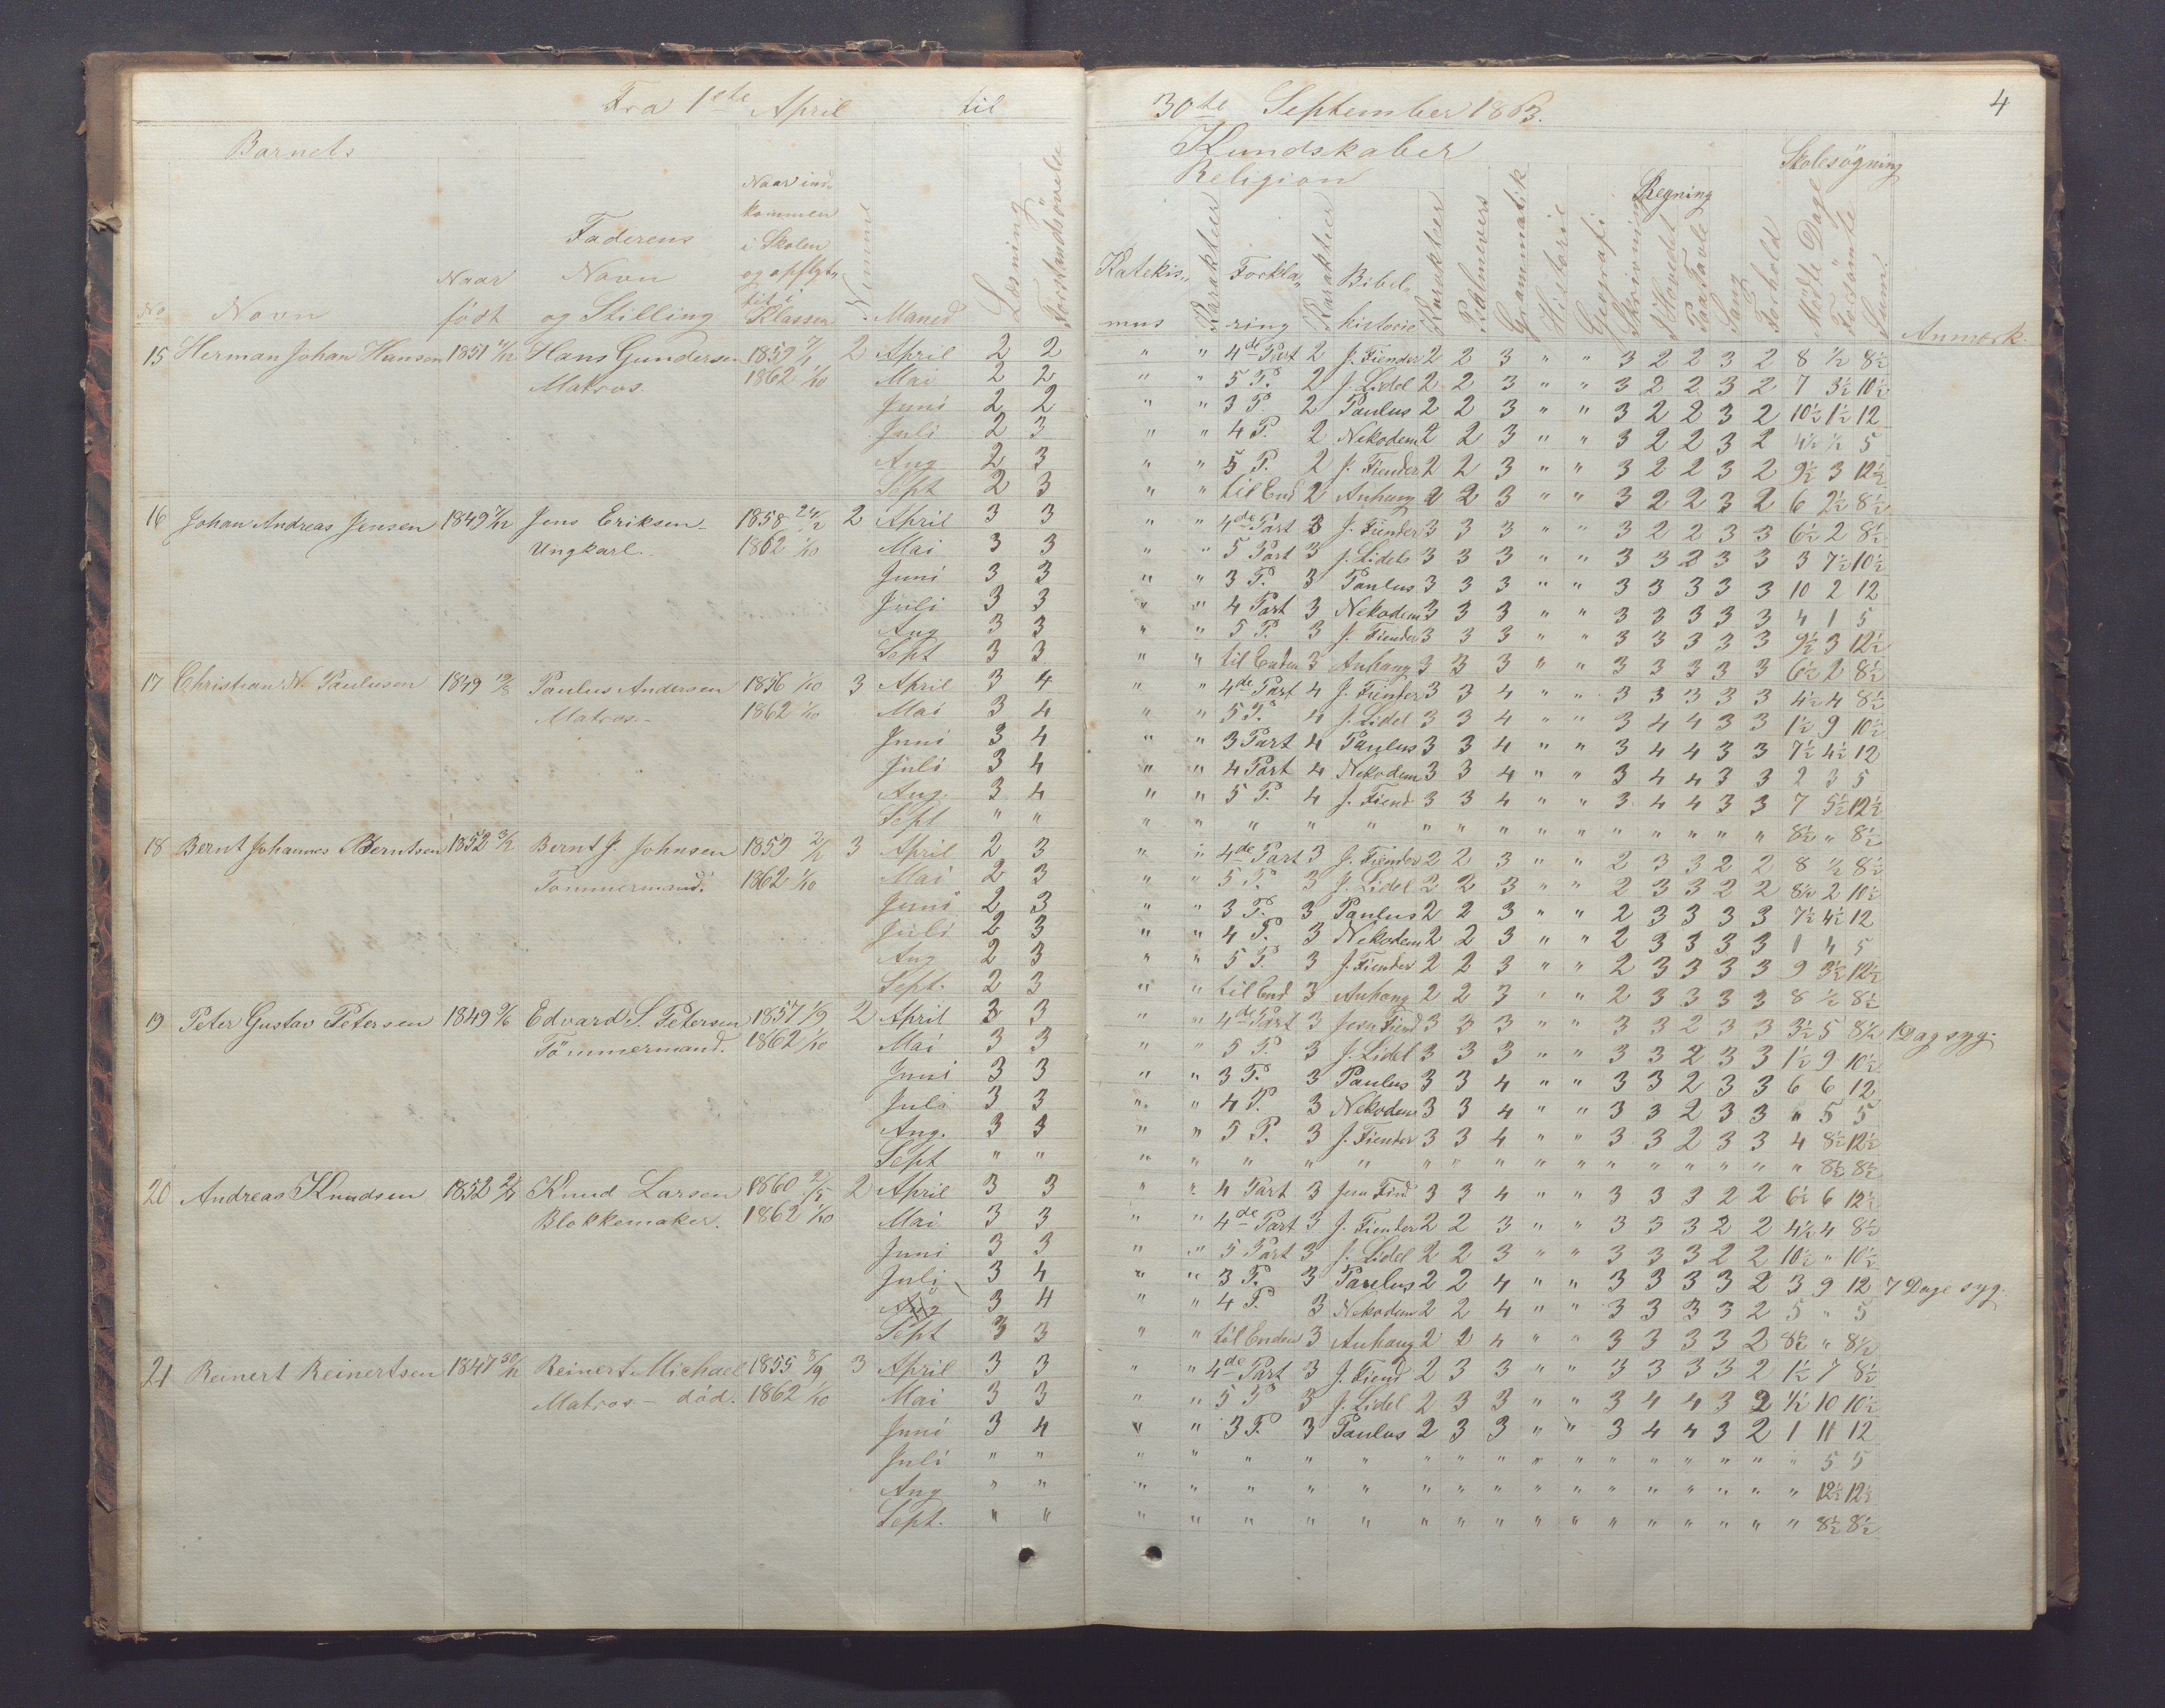 Fra 1ste April til 30te September 1863. 4
Barnets Kundskaber Skolesøgning
Religion Regning
No Navn Naar født Faderens Navn og Stilling Naar indkommen i Skolen og opflyt- tet i Klassen Maaned Læsning Forstandsøvelse Katekis- mus Karakteer Forkla- ring Karakteer Bibel- historie Karakteer Psalmevers Grammatik Historie Geografi Skrivning I Hovedet Paa Tavle Sang Forhold Mødte Dage Forsømte Sum Anmærk.
15 Herman Johan Hansen 1851 Hans Gundersen 1859 2 April 2 2 " " 4de Part 2 J. Fiender 2 2 3 " " 3 2 2 3 2 8 ½ 8½
Matros. 1862 1/10 Mai 2 2 " " 5 P. 2 J. Lidel 2 2 3 " " 3 2 2 3 2 7 3½ 10½
Juni 2 2 " " 3 P. 2 Paulus 2 2 3 " " 3 2 2 3 2 10½ 1½ 12
Juli 2 3 " " 4 P. 2 Nekodem 2 2 3 " " 3 2 2 3 2 4½ ½ 5
Aug 2 3 " " 5 P. 2 J. Fiender 2 2 3 " " 3 2 2 3 2 9½ 3 12½
Sept 2 3 " " til End 2 Anhang 2 2 3 " " 3 2 2 3 2 6 2½ 8½
16 Johan Andreas Jensen 1849 Jens Eriksen 1858 24/2 2 April 3 3 " " 4de Part 3 J. Fiender 3 3 3 " " 3 2 2 3 3 6½ 2 8½
Ungkarl. 1862 1/10 Mai 3 3 " " 5 Part 3 J. Lidels 3 3 3 " " 3 3 2 3 3 3 7½ 10½
Juni 3 3 " " 3 P. 3 Paulus 3 3 3 " " 3 3 3 3 3 10 2 12
Juli 3 3 " " 4 Part 3 Nekodem 3 3 3 " " 3 3 3 3 3 4 1 5
Aug 3 3 " " 5 P. 3 J. Fiender 3 3 3 " " 3 3 3 3 3 9½ 3 12½
Sept 3 3 " " til Enden 3 Anhang 3 3 3 " " 3 3 3 3 3 6½ 2 8½
17 Christian N. Paulusen 1849 Paulus Andersen 1856 1/10 3 April 3 4 " " 4de Part 4 J. Fiender 3 3 4 " " 3 3 3 3 3 4½ 4 8½
Matros. 1862 1/10 Mai 3 4 " " 5 P. 4 J. Lidel 3 3 4 " " 3 4 4 3 3 1½ 9 10½
Juni 3 4 " " 3 Part 4 Paulus 3 3 4 " " 3 4 4 3 3 7½ 4½ 12
Juli 3 4 " " 4 Part 4 Nekodem 3 3 4 " " 3 4 4 3 3 2 3 5
Aug. 3 4 " " 5 P. 4 J. Fiend 3 3 4 " " 3 4 4 3 3 7 5½ 12½
Sept " " " " " " " " " " " " " " " " " 8½ " 8½
18 Bernt Johannes Berntsen 1852 Bernt J. Johnsen 1859 3 April 2 3 " " 4de Part 3 J. Fiender 2 2 3 " " 2 3 3 2 2 8 ½ 8½
Tømmermand. 1862 1/10 Mai 2 3 " " 5 P. 3 J. Lidel 2 2 3 " " 2 3 3 2 2 8½ 2 10½
Juni 2 3 " " 3 P. 3 Paulus 2 2 3 " " 2 3 3 3 3 7½ 4½ 12
Juli 2 3 " " 4 P. 3 Nekodem 2 2 3 " " 2 3 3 3 3 1 4 5
Aug 2 3 " " 5 P. 3 J. Fiender 2 2 3 " " 2 3 3 3 3 9 3½ 12½
Sept. 2 3 " " til End 3 Anhang 2 2 3 " " 2 3 3 3 3 8 ½ 8½
19 Peter Gustav Petersen 1849 Edvard S. Petersen 1857 1/9 2 April 3 3 " " 4de Part 3 Jesu Fiend 3 3 3 " " 3 3 2 3 3 3½ 5 8½ 1 Dag syg.
Tømmermand. 1862 1/10 Mai 3 3 " " 5 P. 3 J. Lidel 3 3 3 " " 3 3 2 3 3 1½ 9 10½
Juni 3 3 " " 3 P. 3 Paulus 3 3 4 " " 3 3 2 3 3 6 6 12
Juli 3 3 " " 4 P. 3 Nekodem 3 3 4 " " 3 3 2 3 3 " 5 5
Aug. 3 3 " " 5 P. 3 J. Fiender 3 3 4 " " 3 3 2 3 3 4 8½ 12½
Sept " " " " " " " " " " " " " " " " " " 8½ 8½
20 Andreas Knudsen 1852 Knud Larsen 1860 2/5 2 April 3 3 " " 4 Part 3 Jesu Find 3 3 4 " " 3 3 3 2 2 6½ 6 12½
Blokkemaker. 1862 1/10 Mai 3 3 " " 4de Part 3 J. Fiender 2 2 3 " " 3 3 3 2 2 4½ 4 8½
Juni 3 3 " " 5 Part 3 J. Lidel 2 2 3 " " 3 3 3 2 2 10½ " 10½
Juli 3 4 " " 3 P. 3 Paulus 2 2 4 " " 3 3 3 3 2 3 9 12 7 Dage syg.
Aug 3 4 " " 4 P. 3 Nekodem 2 2 4 " " 3 3 3 3 2 5 " 5
Sept 3 3 " " til Enden 3 Anhang 2 2 4 " " 3 3 3 3 2 8½ " 8½
21 Reinert Reinertsen 1847 Reinert Michael 1855 3/9 3 April 3 3 " " 4de Part 3 J. Fiend 2 3 3 " " 3 3 3 3 2 1½ 7 8½
Matros - død. 1862 1/10 Mai 3 3 " " 5 P 3 J. Lidel 2 3 3 " " 3 4 4 3 2 ½ 10 10½
Juni 3 4 " " 3 P. 3 Paulus 2 3 3 " " 3 4 4 3 2 1 11 12
Juli " " " " " " " " " " " " " " " " " " 5 5
Aug " " " " " " " " " " " " " " " " " " 12½ 12½
Sept. " " " " " " " " " " " " " " " " " " 8½ 8½